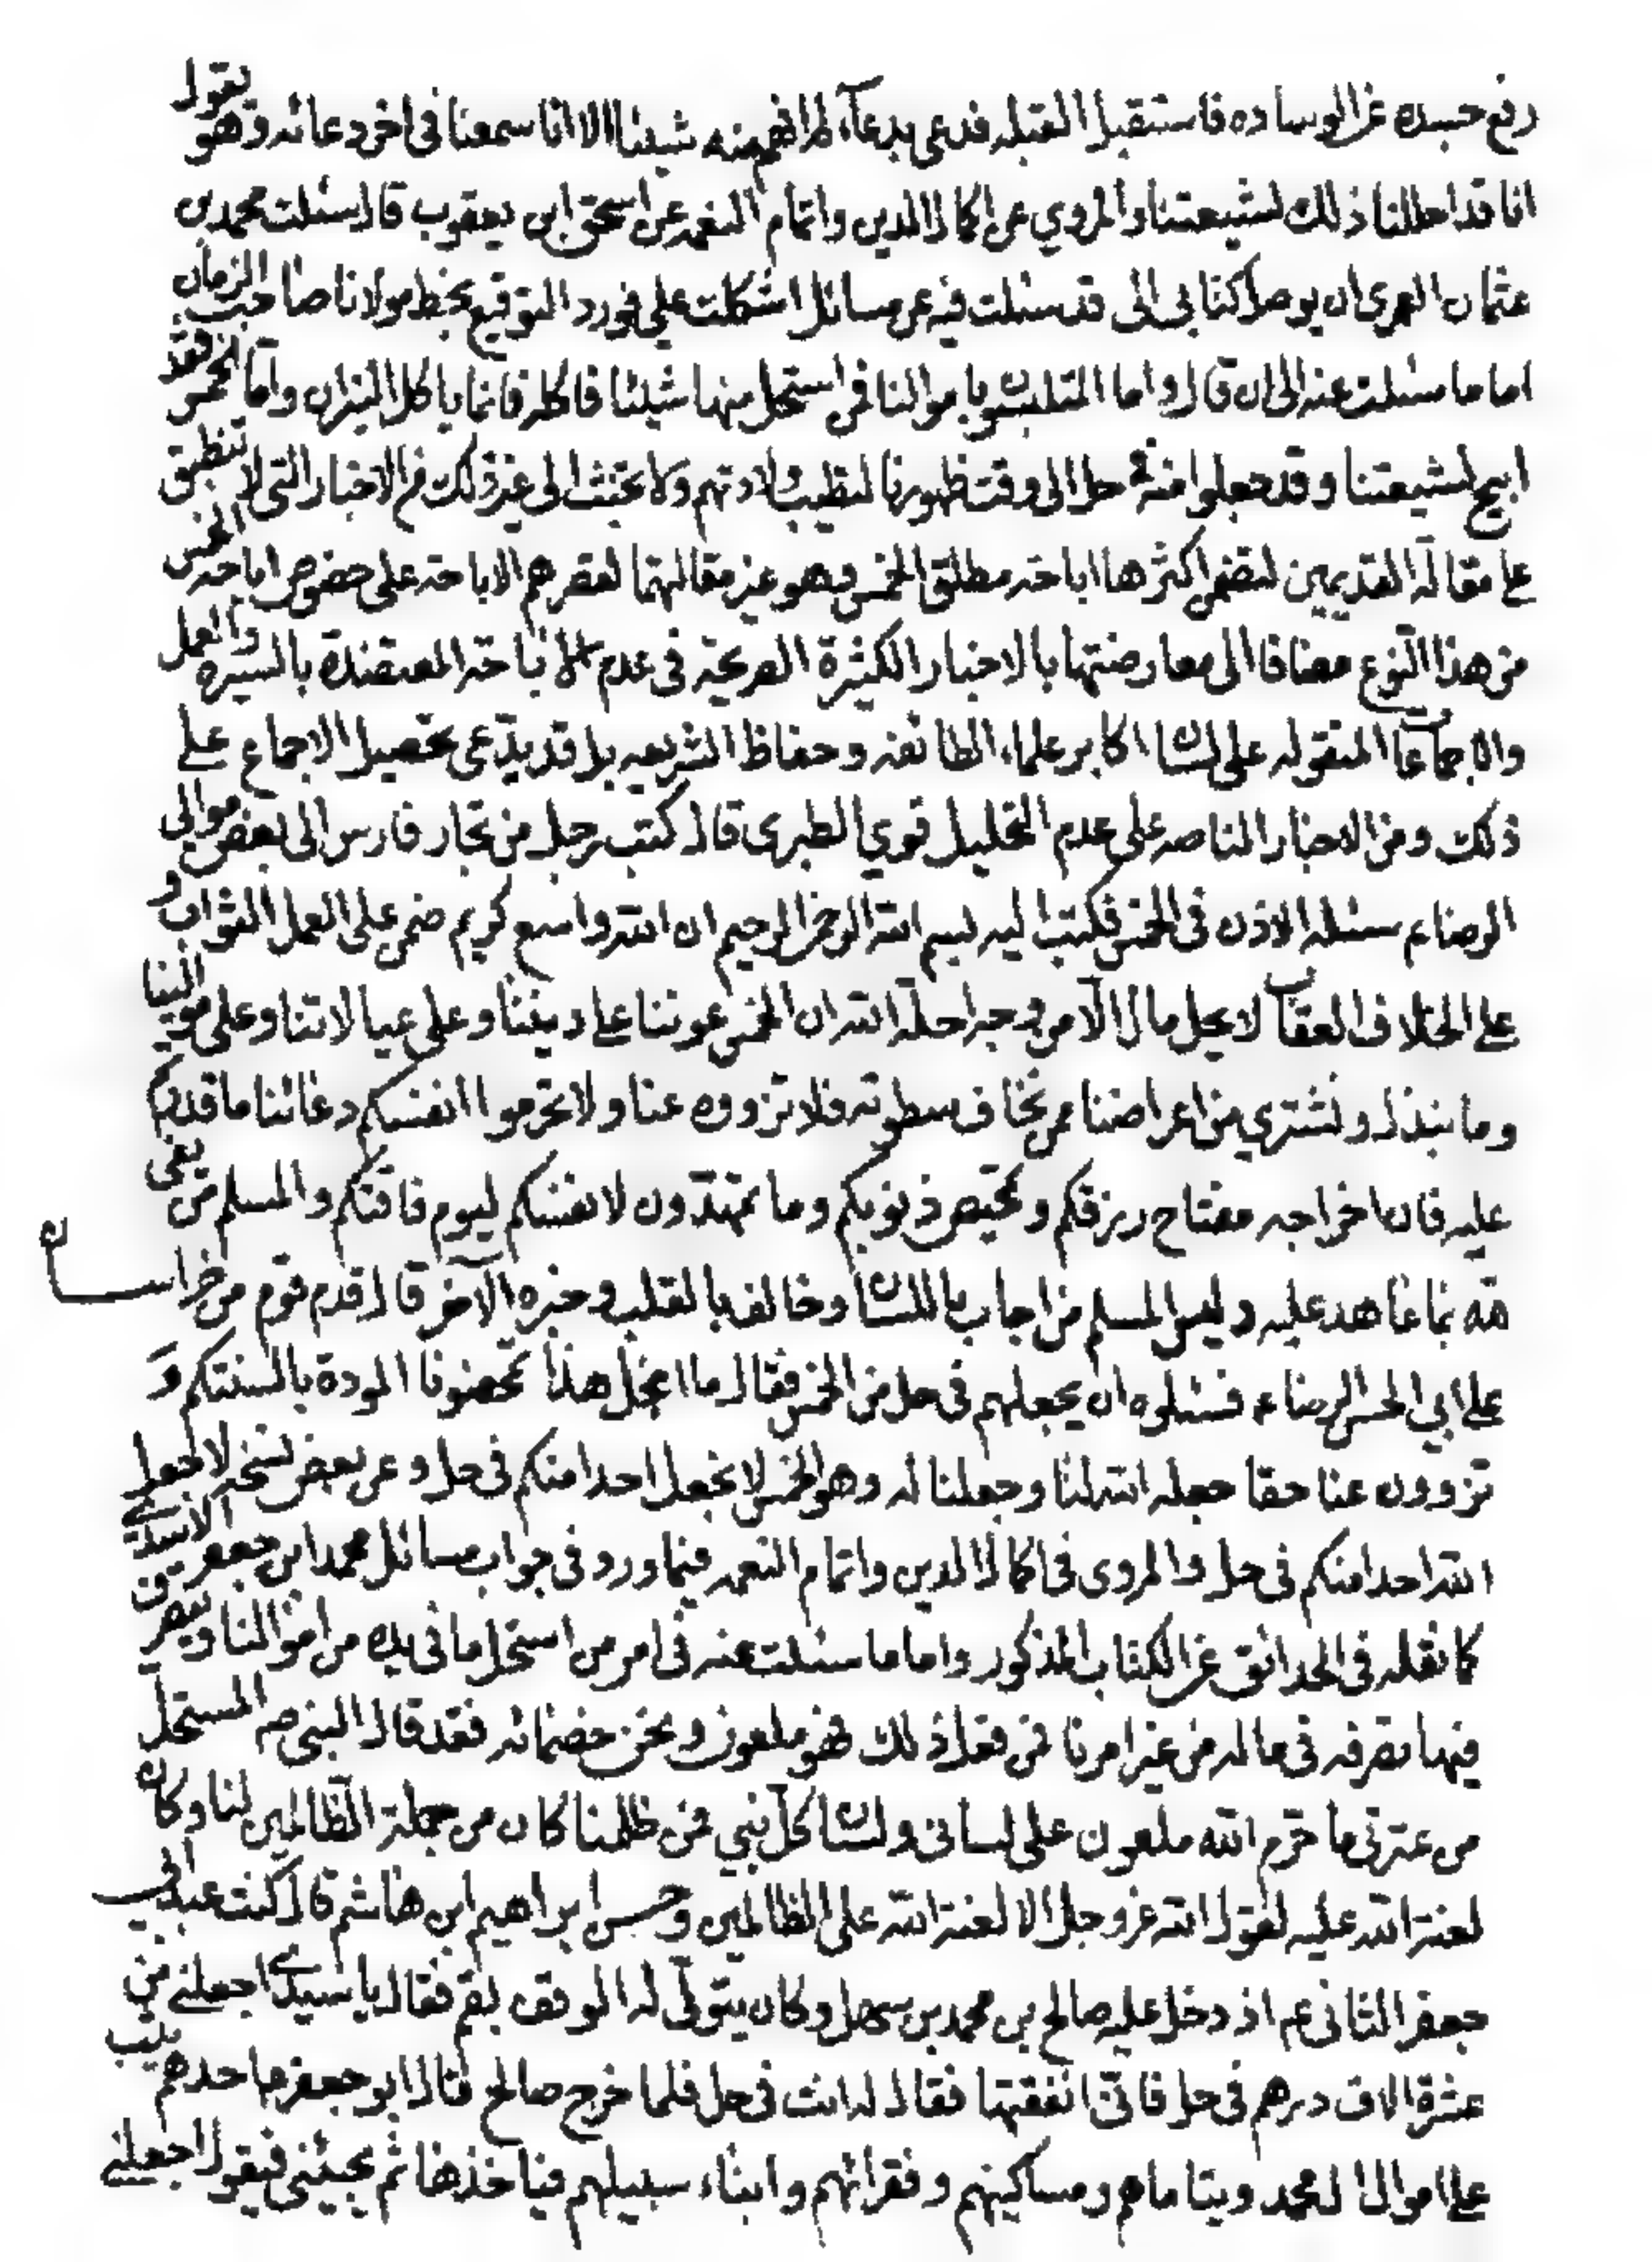 رفع جسده عن الوساده فاستقبل القبله فدعى بدعآء لم افهم منه شيئا الا انا سمعنا فى اخر دعائه وهو يقول
انا قد احللنا ذلك لشيعتنا والمروي عن اكمال الدين واتمام النعمه عن اسحق ابن يعقوب قال سئلت محمد بن
عثمان العمرى ان يوصل كتابى الى قد سئلت فيه عن مسائل اشكلت علي فورد التوقيع بخط مولانا صاحب الزمان
اما ما سئلت عنه الى ان قال واما المتلبسون باموالنا فمن استحل منها شيئا فاكله فانما ياكل النيران واما الخمس فقد
ابيح لشيعتنا وقد جعلوا منه فى حل الى وقت ظهورنا لتطيب ولادتهم ولا تخبث الى غير ذلك من الاخبار التى لا تنطبق
على مقالة القديمين لتضمن اكثرها اباحة مطلق الخمس وهو غير مقالتهما لقصرهم الاباحة على خصوص اباحة الخمس
من هذا النوع مضافا الى معارضتها بالاخبار الكثيرة الصريحة فى عدم الاباحة المعتضدة بالسيره والعمل
والاجماعا المنقوله على لسان اكابر علماء الطائفه وحفاظ الشريعه بل قد يدّعى تحصيل الاجماع على
ذلك ومن الاخبار الناصه على عدم التحليل قوي الطبرى قال كتب رجل من تجار فارس الى بعض موالى
الرضا ع سئله الاذن فى الخمس فكتب اليه بسم الله الرحمن الرحيم ان الله واسع كريم ضمن على العمل الثواب و
على الخلاف العقاب لا يحل مال الّا من وجه احلّه الله ان الخمس عوننا على ديننا وعلى عيالاتنا وعلى موالينا
وما نبذل ونشتري من اعراضنا ممن نخاف سطوته فلا تزووه عنا ولا تحرموا انفسكم دعائنا ما قدرتم
عليه فان اخراجه مفتاح رزقكم وتمحيص ذنوبكم وما تمهّدون لانفسكم ليوم فاقتكم والمسلم من يفى
لله بما عاهد عليه وليس المسلم من اجاب باللسان وخالف بالقلب وخبره الآخر قال قدم قوم من خراسان
على ابي الحسن الرضاء فسئلوه ان يجعلهم فى حل من الخمس فقال ما امحل هذا تمحضونا المودة بالسنتكم و
تزوون عنا حقا جعله الله لنا وجعلنا له وهو الخمس لا نجعل احدا منكم فى حل وعن بعض نسخه لا يجعل
الله احدا منكم فى حل والمروى فى اكمال الدين واتمام النعمه فيما ورد فى جواب مسائل محمد ابن جعفر الاسدي
كما نقله فى الحدائق عن الكتاب المذكور واما ما سئلت عنه فى امر من استحل ما فى يده من اموالنا ويتصرف
فيها تصرفه فى ماله من غير امرنا فمن فعل ذلك فهو ملعون ونحن خصمائه فقد قال النبى ص المستحل
من عترتى ما حرّم الله ملعون على لسانى ولسان كلّ نبي فمن ظلمنا كان من جملة الظالمين لنا وكان
لعنة الله عليه لقول الله عز وجل الا لعنة الله على الظالمين وحسن ابراهيم ابن هاشم قال كنت عند ابى
جعفر الثانى ع اذ دخل عليه صالح بن محمد بن سهل وكان يتولّى له الوقف بقم فقال يا سيدى اجعلنى من
عشرة الاف درهم فى حل فانّى انفقتها فقال له انت فى حل فلما خرج صالح قال ابو جعفر ع احدهم يثب
على اموال ال محمد ويتاماهم ومساكينهم وفقرائهم وابناء سبيلهم فياخذها ثم يجيئنى فيقول اجعلنى